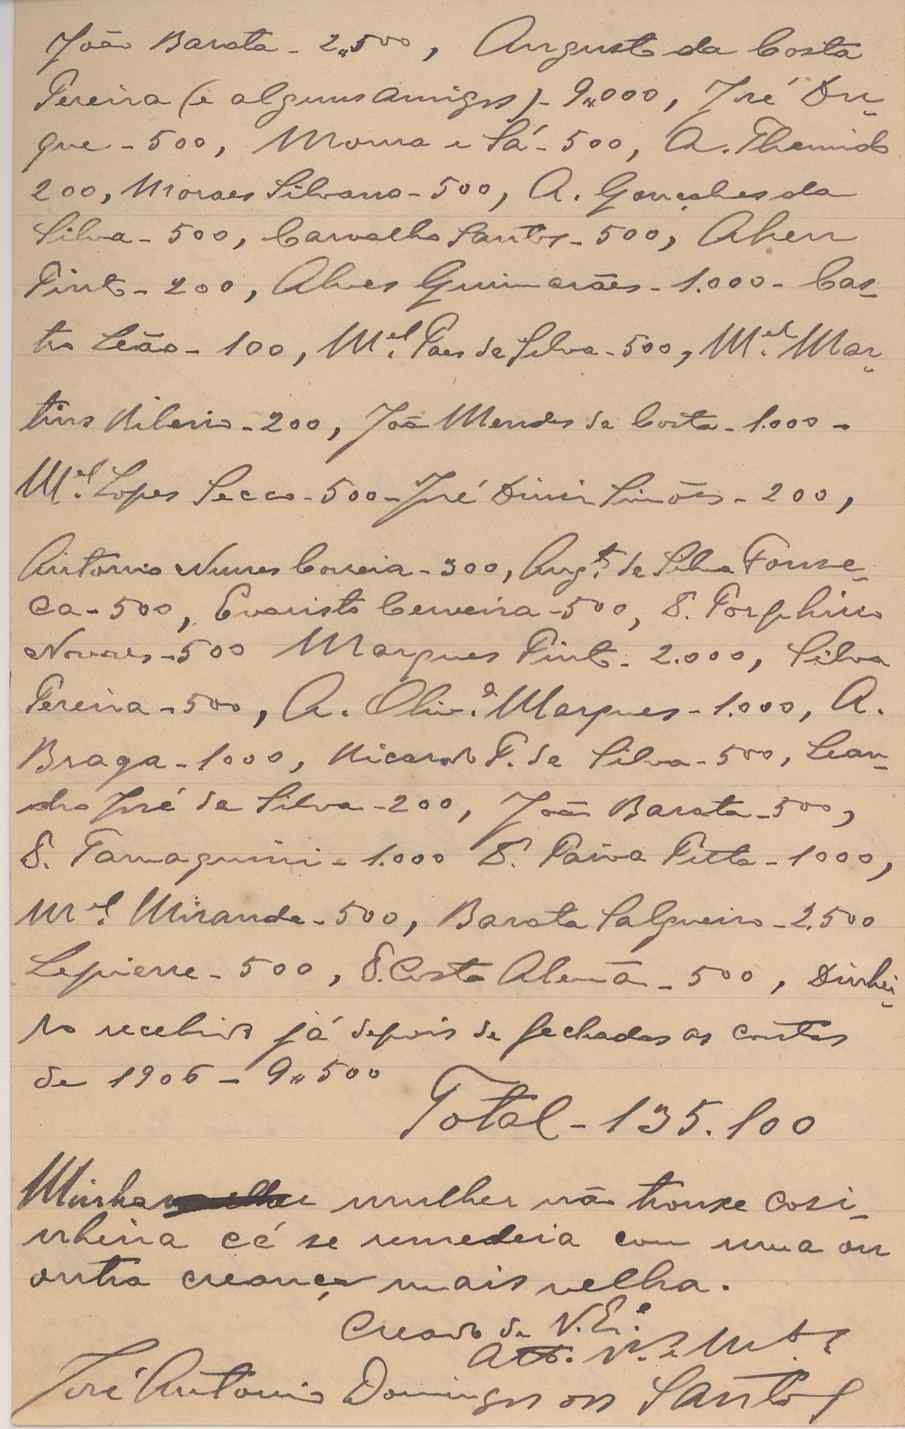 João Barata - 2,,500, Augusto da Costa
Pereira (e alguns amigos) - 9,,000, José Du-
que - 500, Moura e Sá - 500, A. Themido
200, Moraes Silvano - 500, A. Gonçalves da
Silva - 500, Carvalho Santos - 500, Abeu
Pinto - 200, Alves Guimarães - 1.000 - Cas-
tro Leão - 100, Mel. Paes da Silva - 500, Mel. Mar-
tins Ribeiro - 200, João Mendes da Costa - 1.000 -
Mel. Lopes Secco - 500 - José Diniz Simões - 200,
Antonio Nunes Correia - 300, Augto. da Silva Fonse-
ca - 500, Evaristo Cerveira - 500, D. Porphirio
Novaes - 500 Marques Pinto - 2.000, Silva
Pereira - 500, A. Olivra. Marques - 1.000, A.
Braga - 1000, Ricardo P. da Silva - 500, Lean-
dro José da Silva - 200, João Barata - 500,
D. Tamagnini - 1.000 D. Paiva Pitta - 1000,
Mel. Miranda - 500, Barata Salgueiro - 2.500
Lepierre - 500, D. Costa Alemã - 500, Dinhei-
ro recebido já depois de fechadas as contas
de 1906 - 9,,500
Total - 135.100
Minha mulher não trouxe cosi-
nheira cá se remedeia com uma ou
outra creança mais velha.
Creado de V. Ea.
Atto. Vor. e
José Antonio Domingos os Santos